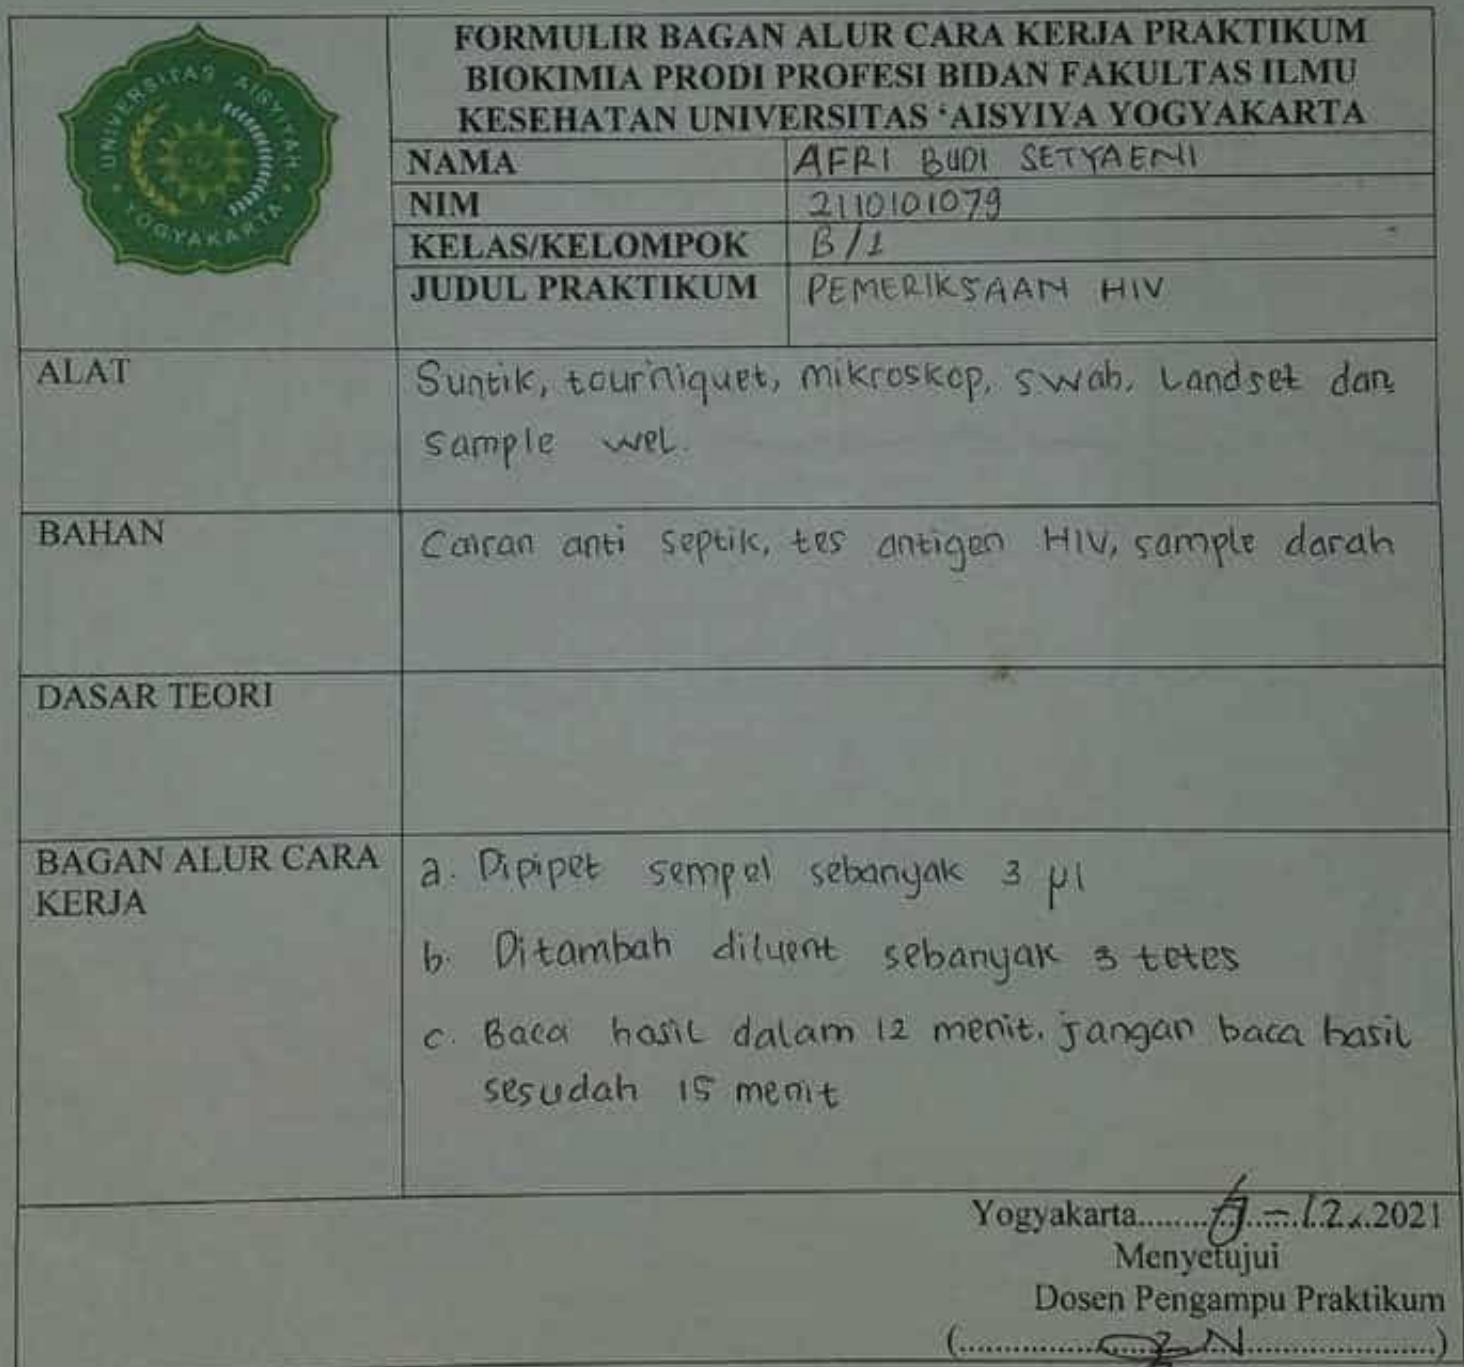 UNIVERSITAS 'AISYIYAH
YOGYAKARTA
FORMULIR BAGAN ALUR CARA KERJA PRAKTIKUM
BIOKIMIA PRODI PROFESI BIDAN FAKULTAS ILMU
KESEHATAN UNIVERSITAS ‘AISYIYA YOGYAKARTA
NAMA AFRI BUDI SETYAENI
NIM 2110101079
KELAS/KELOMPOK B/1
JUDUL PRAKTIKUM PEMERIKSAAN HIV
ALAT Suntik, tourniquet, mikroskop, swab, Landset dan
sample wel.
BAHAN Cairan anti septik, tes antigen HIV, sample darah
DASAR TEORI
BAGAN ALUR CARA
KERJA
a. Dipipet sempel sebanyak 3 µl
b. Ditambah diluent sebanyak 3 tetes
c. Baca hasil dalam 12 menit. jangan baca hasil
sesudah 15 menit
Yogyakarta.................-12..2021
Menyetujui
Dosen Pengampu Praktikum